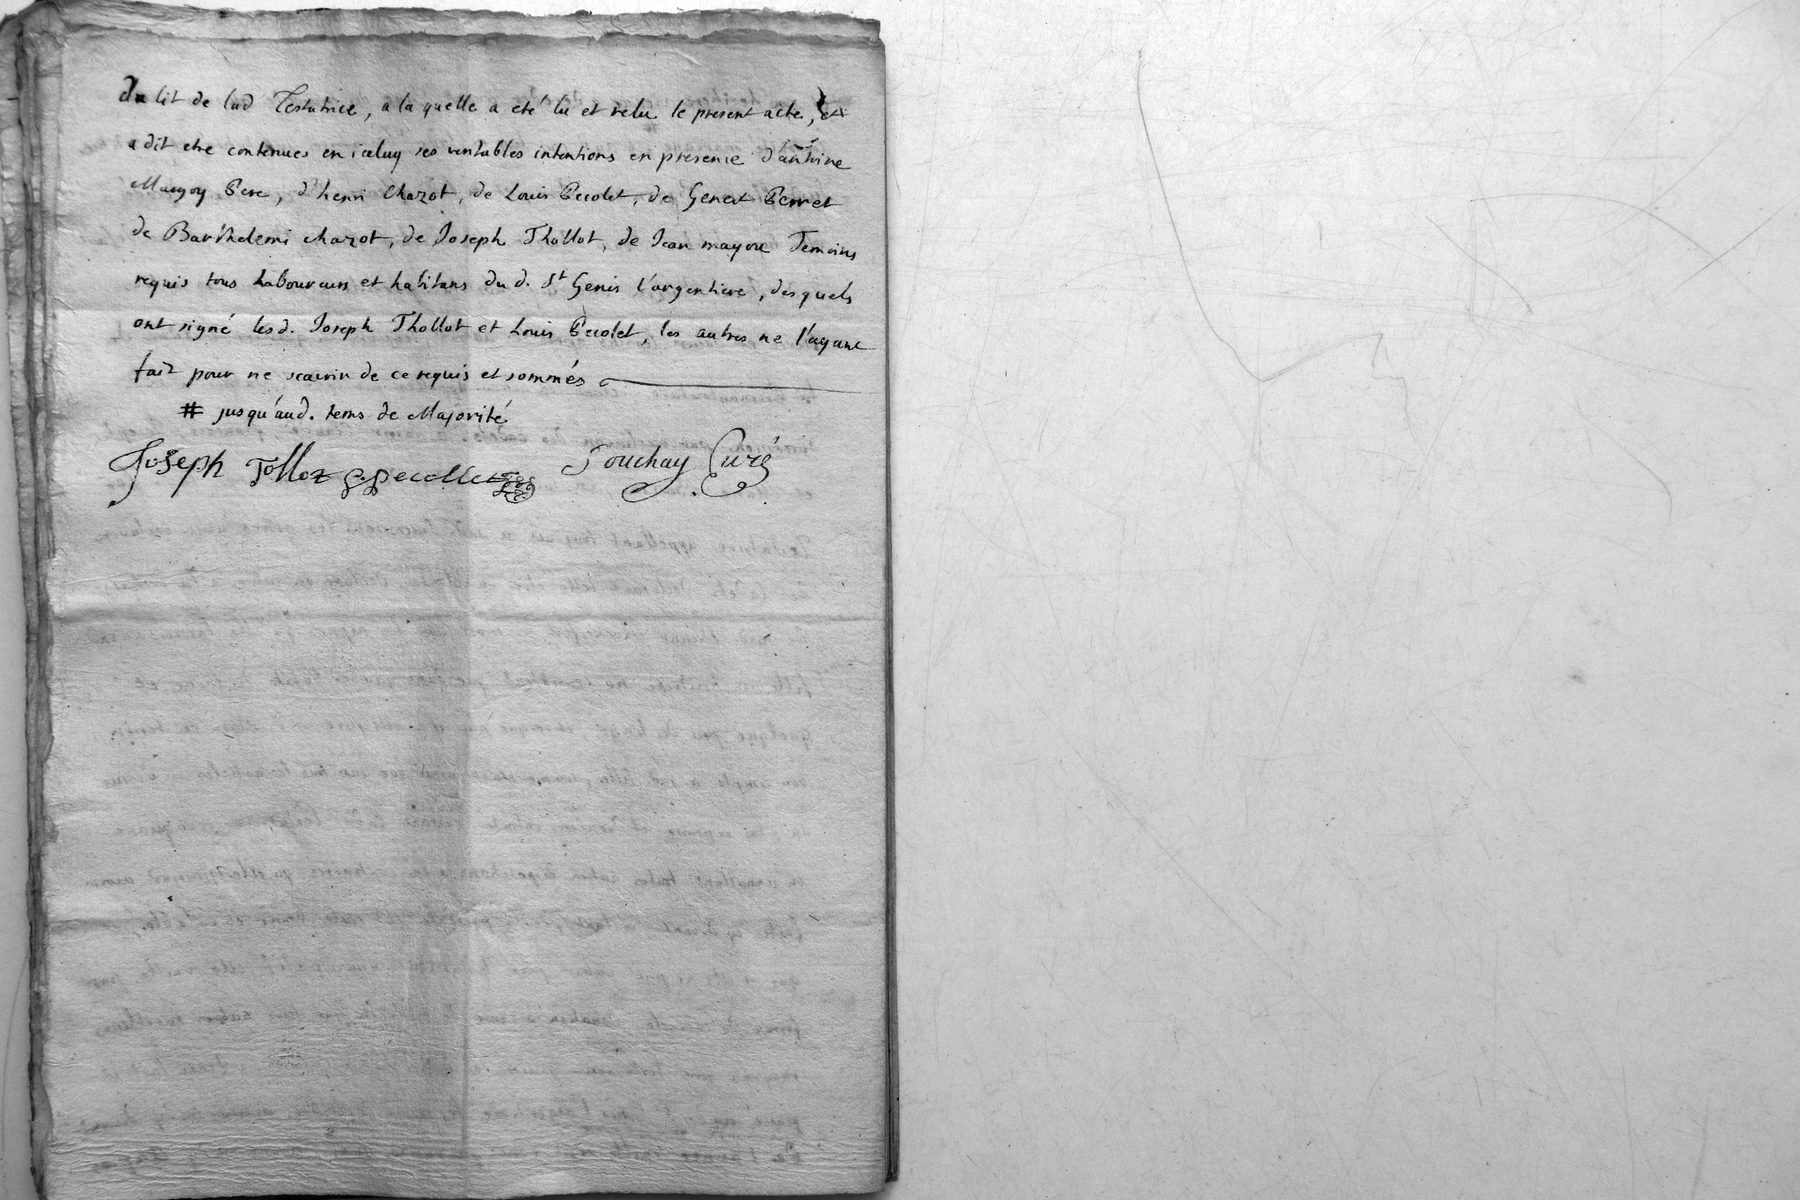 du lit de lad Testatrice, a la quelle a eté lu et relu le present acte, et
a dit etre contenues en iceluy ses veritables intentions en presence d'antoine
pere, d'henri Chazot, de Louis Pecolet, de Genest Perret
de Barthelemi chazot, de Joseph Thollot, de Jean mayore Temoins
requis tous Laboureurs et habitans du d. St Genis l'argentiere, desquels
ont signé lesd. Joseph Thollot et Louis Pecolet, les autres ne l'ayant
fait pour ne scavoir de ce requis et sommés
# jusqu'aud. tems de Majorité
Joseph Tolloz pecollet Souchay Curé